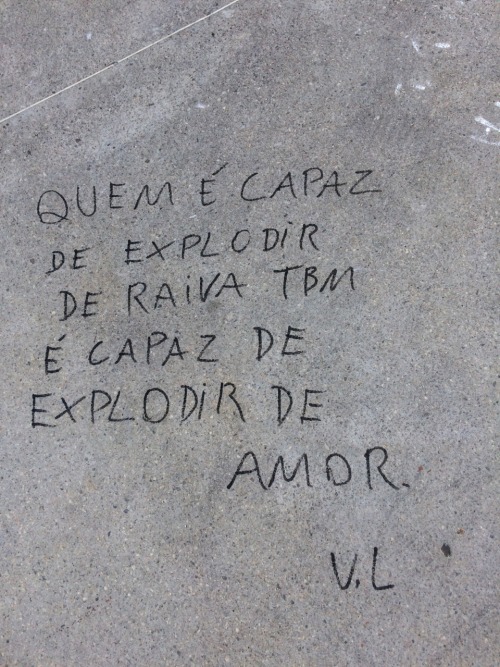 QUEM É CAPAZ
DE EXPLODIR
DE RAIVA TBM
É CAPAZ DE
EXPLODIR DE
AMOR.
V.L